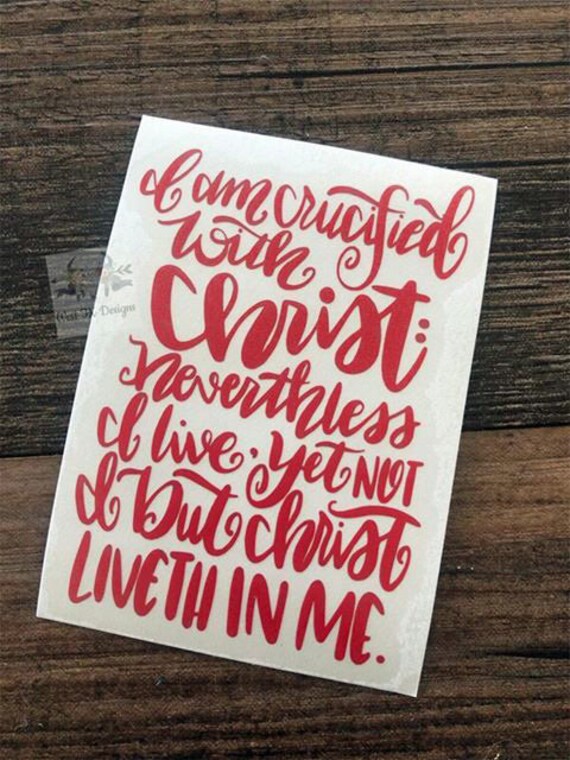 I am crucified
with
Christ:
neverthless
I live, yet NOT
I but christ
LIVETH IN ME.
West TX Designs